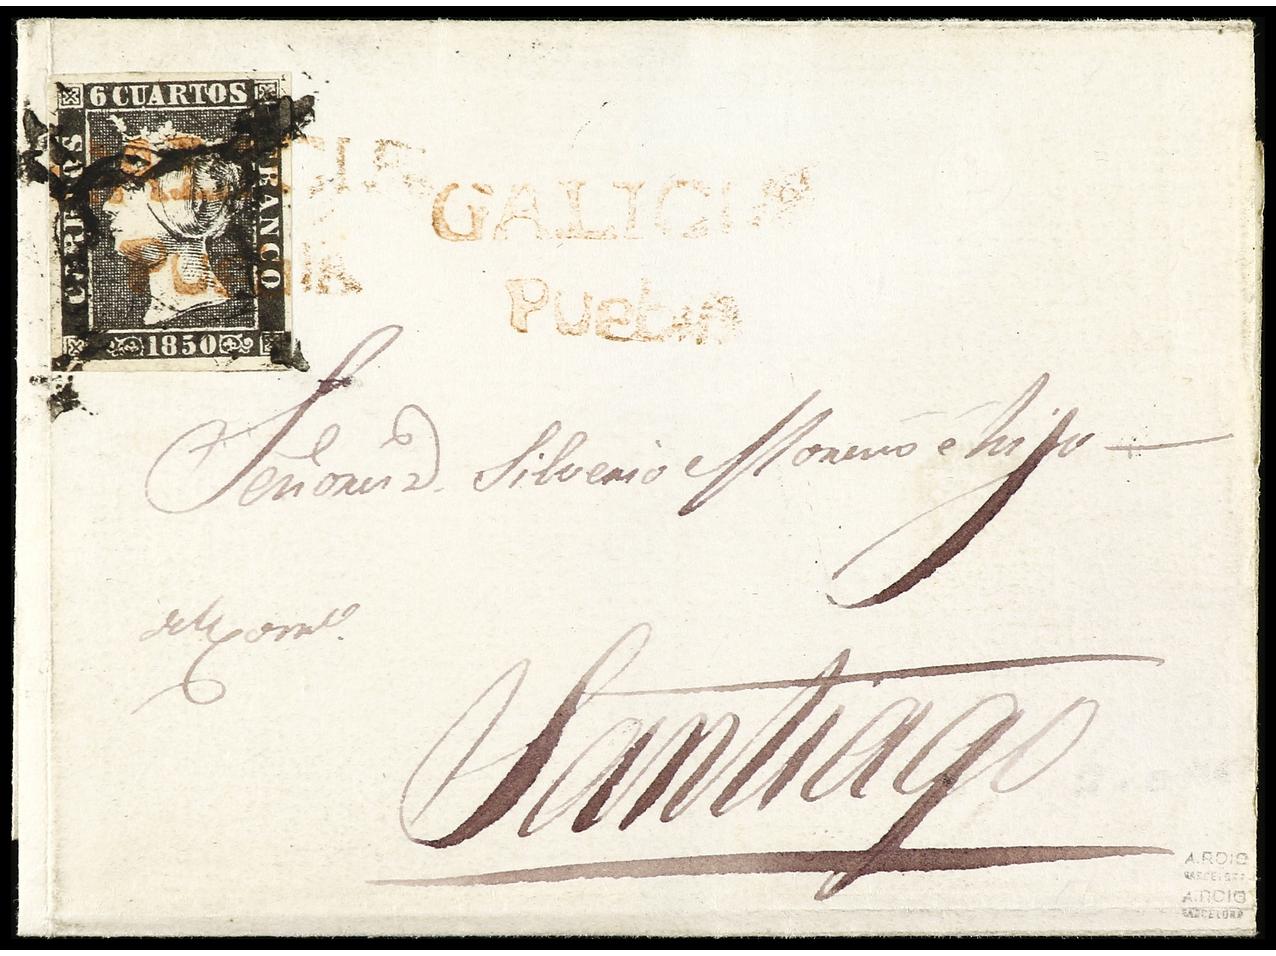 6 CUARTOS
CERTOS
FRANCO
1850
GALICIA
Puebla
GALICIA
Puebla
Señores D. Silverio Moreno é hijo
del Comº
Santiago
A.ROIG
BARCELONA
A.ROIG
BARCELONA